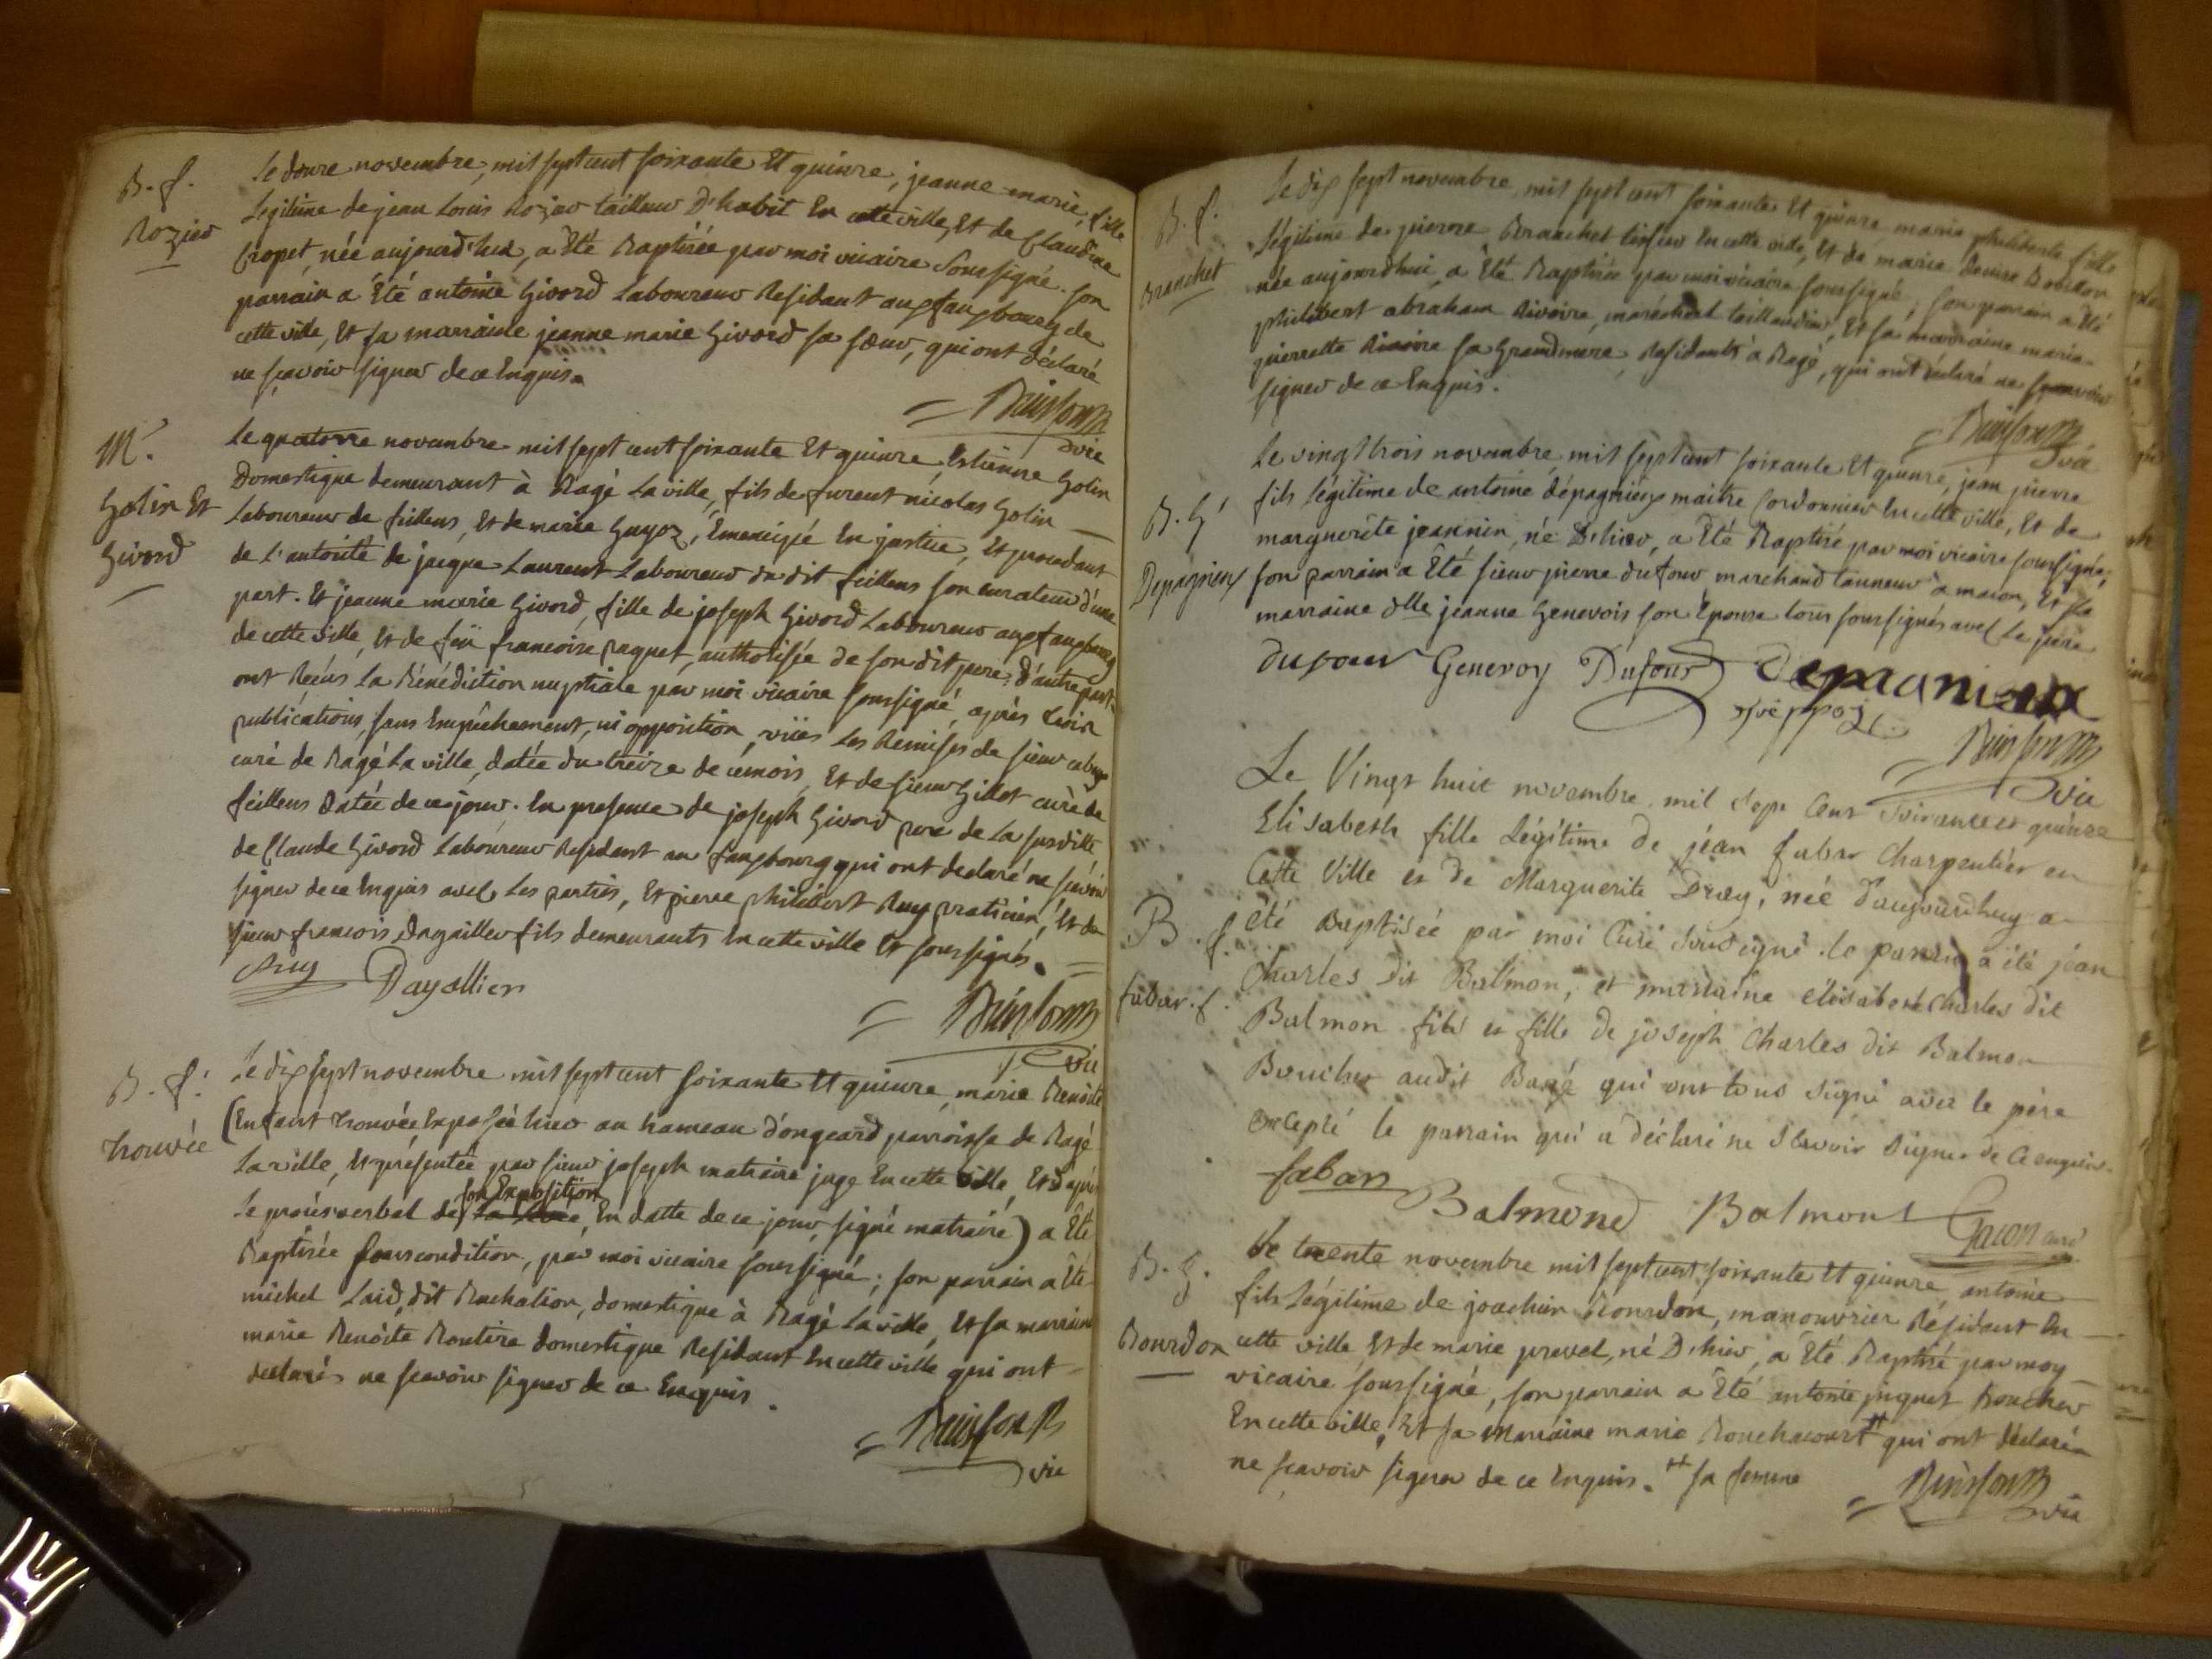 B. f.
Rozier
Le douze novembre, mil sept cent soixante Et quinze, jeanne marie, fille
Legitime de jean Louis Rozier tailleur D'habit En cette ville, Et de Claudine
Cropet, née aujourd'hui, a Eté Baptisée par moi vicaire Soussigné. son
parrain a Eté antoine Givord Laboureur Residant aux fauxbourg de
cette ville, Et sa marraine jeanne marie Givord sa sœur, qui ont déclaré
ne sçavoir signer de ce Enquis.
Buisson
vic
M.
Golin Et
Givord
Le quatorze novembre mil sept cent soixante Et quinze Estienne Golin
Domestique demeurant à Bagé La ville, fils de furent nicolas Golin
Laboureur de feillens, Et de marie Guyoz, Emancipé En justice, Et procedant
de L'autorité de jacque Laurent Laboureur du dit feillens son curateur d'une
part. Et jeanne marie Givord, fille de joseph Givord Laboureur aux fauxbourg
de cette ville, Et de feüe francoise paquet, authorisée de son dit pere, d'autre part.
ont Recûs La Bénédiction nuptiale par moi vicaire soussigné, après trois
publications, sans Empêchement, ni opposition, viies Les Remises de sieur
curé de Bagé La ville, datée du treize de ce mois, Et de sieur Gillet curé de
feillens Datée de ce jour. En presence de joseph Givord pere de La susditte
de Claude Givord Laboureur Residant au fauxbourg qui ont declaré ne sçavoir
signer de ce Enquis avec Les parties, Et pierre philibert Ruy praticien, Et de
sieur francois Dagallier fils demeurants En cette ville Et soussignés.
Ruy Dagallier
Buisson
vic
B. f.
trouvée
Le dix sept novembre mil sept cent soixante Et quinze, marie Benoite
(Enfant trouvée Exposée hier au hameau d'ongeard parroisse de Bagé
La ville, Et présentée par sieur joseph matraire juge En cette ville, Et d'après
son Exposition
Le procès verbal de La Levée, En datte de ce jour, signé matraire) a Eté
Baptisée sous condition, par moi vicaire soussigné; son parrain a Eté
michel Laid, dit Ruchation, domestique à Bagé La ville, Et sa marraine
marie Benoite Boutire domestique Residant En cette ville qui ont
declarés ne sçavoir signer de ce Enquis.
Buisson
vic
B. f.
Branchet
Le dix sept novembre, mil sept cent soixante Et quinze, marie philiberte fille
Légitime de pierre Branchet tissier En cette ville, Et de marie Denise Bourdon
née aujourdhui, a Eté Baptisée par moi vicaire soussigné; son parrain a Eté
philibert abraham Rivoire, maréchal taillandier, Et sa marraine marie
pierrette Rivoire sa Grandmere, Residants à Bagé, qui ont déclaré ne sçavoir
signer de ce Enquis.
Buisson
vic
B. G.
Depagnieux
Le vingt trois novembre mil sept cent soixante Et quinze, jean pierre
fils Légitime de antoine dépagnieux maitre Cordonnier En cette ville, Et de
marguerite jeannin, né D'hier, a Eté Baptisé par moi vicaire soussigné;
son parrain a Eté sieur pierre dufour marchand tanneur à macon, Et sa
marraine dlle jeanne Genevois son Epouse tous soussignés avec Le pere
dufour Genevoy Dufour Depagnieux
Buisson
vic
B. f.
fabar. f.
Le Vingt huit novembre mil Sept Cent Soixante et quinze
Elisabeth fille Légitime de jéan fabar Charpentier en
Cette Ville et de Marguerite Dray, née d'aujourdhuy a
été Baptisée par moi Curé Soussigné. le parrin a été jéan
Charles dit Balmon, et marraine elisabeth Charles dit
Balmon fils et fille de joseph Charles dit Balmon
Boucher audit Bagé qui ont tous Signé avec le père
excepté le parrain qui a déclaré ne Scavoir Signer de Ce enquis.
fabar
Balmond Balmont Gacon curé
B. G.
Bourdon
Le trente novembre mil sept cent soixante Et quinze, antoine
fils Légitime de joachim Bourdon, manouvrier Résidant En
cette ville Et de marie prevel, né D'hier, a Eté Baptisé par moy
vicaire soussigné, son parrain a Eté antoine piquet Boucher
En cette ville, Et sa Marraine marie Bouchacourt ++ qui ont déclarés
ne sçavoir signer de ce Enquis. ++ sa femme
Buisson
vic